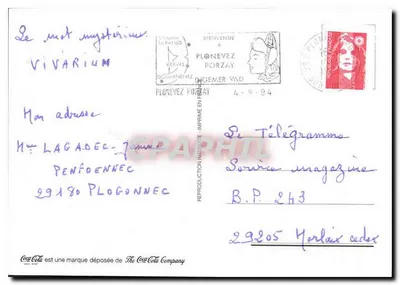 Le mot mystérieux
VIVARIUM
Mon adresse
Mme LAGADEC Jeannine
PENFOENNEC
29180 PLOGONNEC
BIENVENUE
A
PLONEVEZ
PORZAY
DEGEMER VAD
PLONEVEZ PORZAY
4-9-94
REPRODUCTION INTERDITE - IMPRIMÉ EN FRANCE
Le Télégramme
Service magazine
B.P. 243
29205 Morlaix cedex
Coca-Cola est une marque déposée de The Coca-Cola Company